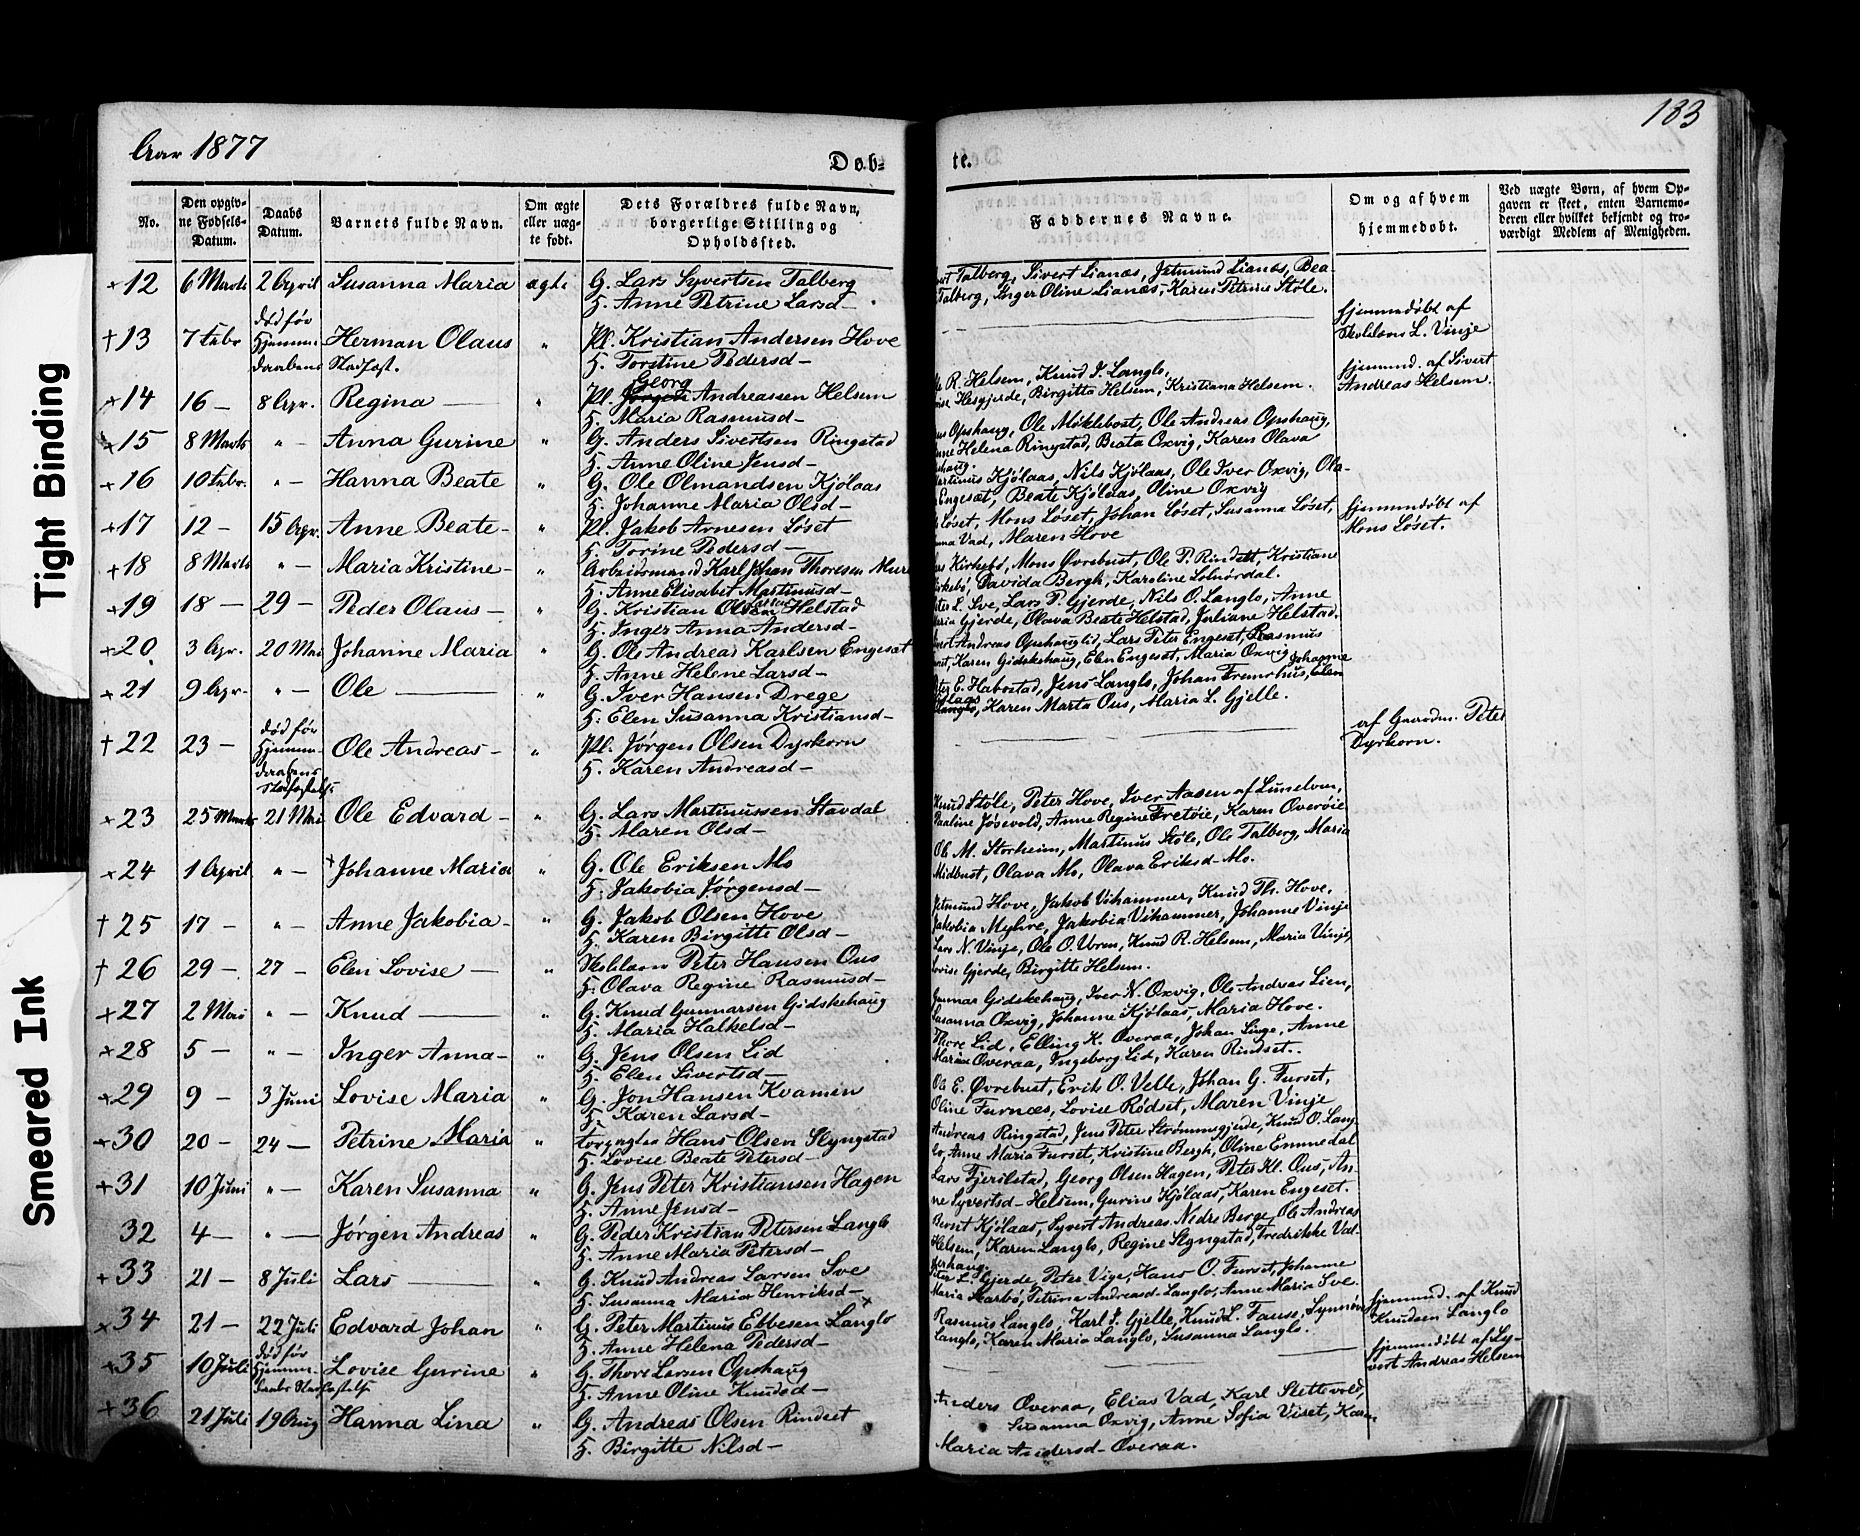 Aar 1877
183
Døb=
te.
No.
Den opgiv-
ne Fødsels-
Datum.
Daabs
Datum.
Barnets fulde Navn.
Om ægte
eller uæg-
te født.
Dets Forældres fulde Navn,
borgerlige Stilling og
Opholdssted.
Faddernes Navne.
Om og af hvem
hjemmedøbt.
Ved uægte Børn, af hvem Op-
gaven er skeet, enten Barnemo-
deren eller hvilket bekjendt og tro-
værdigt Medlem af Menigheden.
+12 6 Marts 2 April Susanna Maria ægte G. Lars Syvertsen Talberg
H. Anne Petrine Larsd-
Talberg, Sivert Lianæs, Jetmund Lianæs, Bea-
Talberg, Inger Oline Lianæs, Karen Petrine Støle.
†13 7 Febr død før
Hjemme-
daabens Stadfæst. Herman Olaus " Pl. Kristian Andersen Hove
H. Torstine Pedersd-
hjemmedøbt af
Skolelærer L. Vinje
+14 16 - 8 Apr. Regina " Pl. Georg Andreassen Helsem
H. Maria Rasmusd-
R. Helsem, Knud J. Langlo,
Hesgjerde, Birgitta Helsem, Kristiana Helsem.
hjemmed. af Sivert
Andreas Helsem.
+15 8 Marts " - Anna Gurine " G. Anders Sivertsen Ringstad
H. Anne Oline Jensd-
Opshaug, Ole Møklebost, Ole Andreas Opshaug,
Helena Ringstad, Beata Oxvig, Karen Olava
+16 10 Febr. " - Hanna Beate " G. Ole Olmandsen Kjølaas
H. Johanne Maria Olsd-
Martinus Kjølaas, Nils Kjølaas, Ole Iver Oxvig, Ola-
Engesæt, Beate Kjølaas, Oline Oxvig
+17 12 - 15 Apr. Anne Beate - " Pl. Jakob Arnesen Løset
H. Torine Pedersd-
Løset, Mons Løset, Johan Løset, Susanna Løset,
Vad, Maren Hove
hjemmedøbt af
Mons Løset.
+18 8 Marts " - Maria Kristine - " Arbeidsmand Karl Johan Thoresen Mure
H. Anne Elisabet Martinusd-
Kirkebø, Mons Øvrebust, Ole P. Rindset, Kristian
Kirkebø, Davida Bergh, Karoline Solnørdal.
+19 18 - 29 - Peder Olaus - " G. Kristian Olsen Helstad
H. Inger Anna Andersd-
L. Sve, Lars P. Gjerde, Nils O. Langlo, Anne
Maria Gjerde, Olava Beate Helstad, Juliane Helstad.
+20 3 Apr. 20 Mai Johanne Maria " G. Ole Andreas Karlsen Engeset
H. Anne Helene Larsd-
Andreas Opshauglid, Lars Peter Engeset, Rasmus
Karen Gidskehaug, Elen Engeset, Maria Oxvig, Johanne
+21 9 Apr. " - Ole " G. Iver Hansen Drege
H. Elen Susanna Kristiansd-
E. Habostad, Jens Langlo, Johan Fremrhus, Elen
Langlo, Karen Marta Ous, Maria L. Gjelle.
†22 23 - død før
Hjemme-
daabens
Stadfæstelse Ole Andreas - " Pl. Jørgen Olsen Dyrkorn
H. Karen Andreasd-
af Gaardm. Peter
Dyrkorn.
+23 25 Marts 21 Mai Ole Edvard - " G. Lars Martinussen Stavdal
H. Maren Olsd-
Knud Støle, Peter Hove, Iver Aasen af
Pauline Jøsevold, Anne Regine Fretøie, Karen Overøie
+24 1 April " - Johanne Maria " G. Ole Eriksen Mo
H. Jakobia Jørgensd-
Ole M. Storheim, Martinus Støle, Ole Talberg, Maria
Midbust, Olava Mo, Olava Eriksd. Mo.
†25 17 - " - Anne Jakobia - " G. Jakob Olsen Hove
H. Karen Birgitte Olsd-
Jetmund Hove, Jakob Vihammer, Knud Th. Hove,
Jakobia Myhre, Jakobia Vihammer, Johanne Vinje
†26 29 - 27 - Elen Lovise - " Skolelærer Peter Hansen Ous
H. Olava Regine Rasmusd-
Lars N. Vinje, Ole O. Uren, Knud R. Helsem, Maria Vinje,
Lovise Gjerde, Birgitte Helsem.
+27 2 Mai " - Knud " G. Knud Gunnarsen Gidskehaug
H. Maria Halkelsd-
Gunnar Gidskehaug, Iver N. Oxvig, Ole Andreas Lien,
Susanna Oxvig, Johanne Kjølaas, Maria Hove.
+28 5 - " - Inger Anna - " G. Jens Olsen Lid
H. Elen Sivertsd-
Thore Lid, Elling K. Overaa, Johan Linge, Anne
Marine Overaa, Ingeborg Lid, Karen Rindset.
+29 9 - 3 Juni Lovise Maria " G. Jon Hansen Kvamen
H. Karen Larsd-
Ole E. Øvrebust, Erik O. Velle, Johan G. Furset,
Oline Furnæs, Lovise Rødset, Maren Vinje
+30 20 - 24 - Petrine Maria " Forpagter Hans Olsen Slyngstad
H. Lovise Beate Petersd-
Andreas Ringstad, Jens Peter Strømmegjerde, Knud O. Lang-
lo, Anne Maria Furset, Kristine Bergh, Oline Emmedal
+31 10 Juni " - Karen Susanna " G. Jens Peter Kristiansen Hagen
H. Anne Jensd-
Lars Fjerilstad, Georg Olsen Hagen, Peter Kl. Ous, An-
ne Syvertsd- Helsem, Gurine Kjølaas, Karen Engeset.
32 4 - " - Jørgen Andreas " G. Peder Kristian Petersen Langlo
H. Anne Maria Petersd-
Bernt Kjølaas, Syvert Andreas Nedre Berge, Ole Andreas
Helsem, Karen Langlo, Regine Slyngstad, Fredrikke Vad-
+33 21 - 8 Juli Lars " G. Knud Andreas Larsen Sve
H. Susanna Maria Henriksd-
Peter L. Gjerde, Peter Vige, Hans O. Furset, Johanne
Maria Skarbø, Petrina Andreasd. Langlo, Anne Maria Sve.
+34 21 - 22 Juli Edvard Johan " G. Peter Martinus Ebbesen Langlo
H. Anne Helena Pedersd-
Rasmus Langlo, Karl J. Gjelle, Knud L. Fause, Synnøve
Langlo, Karen Maria Langlo, Susanna Langlo.
hjemmed. af Knud
Knudsen Langlo
+35 10 Juli død før
Hjemme-
daabs Stadfæstelse Lovise Gurine " G. Thore Larsen Opshaug
H. Anne Oline Knudsd-
hjemmedøbt af Sy-
vert Andreas Helsem
+36 21 Juli 19 Aug Hanna Lina " G. Andreas Olsen Rindset
H. Birgitte Nilsd-
Anders Overaa, Elias Vad, Karl Slettevold,
Susanna Oxvig, Anne Sofia Viset, Karen
Maria Andersd- Overaa.
Tight Binding
Smeared Ink